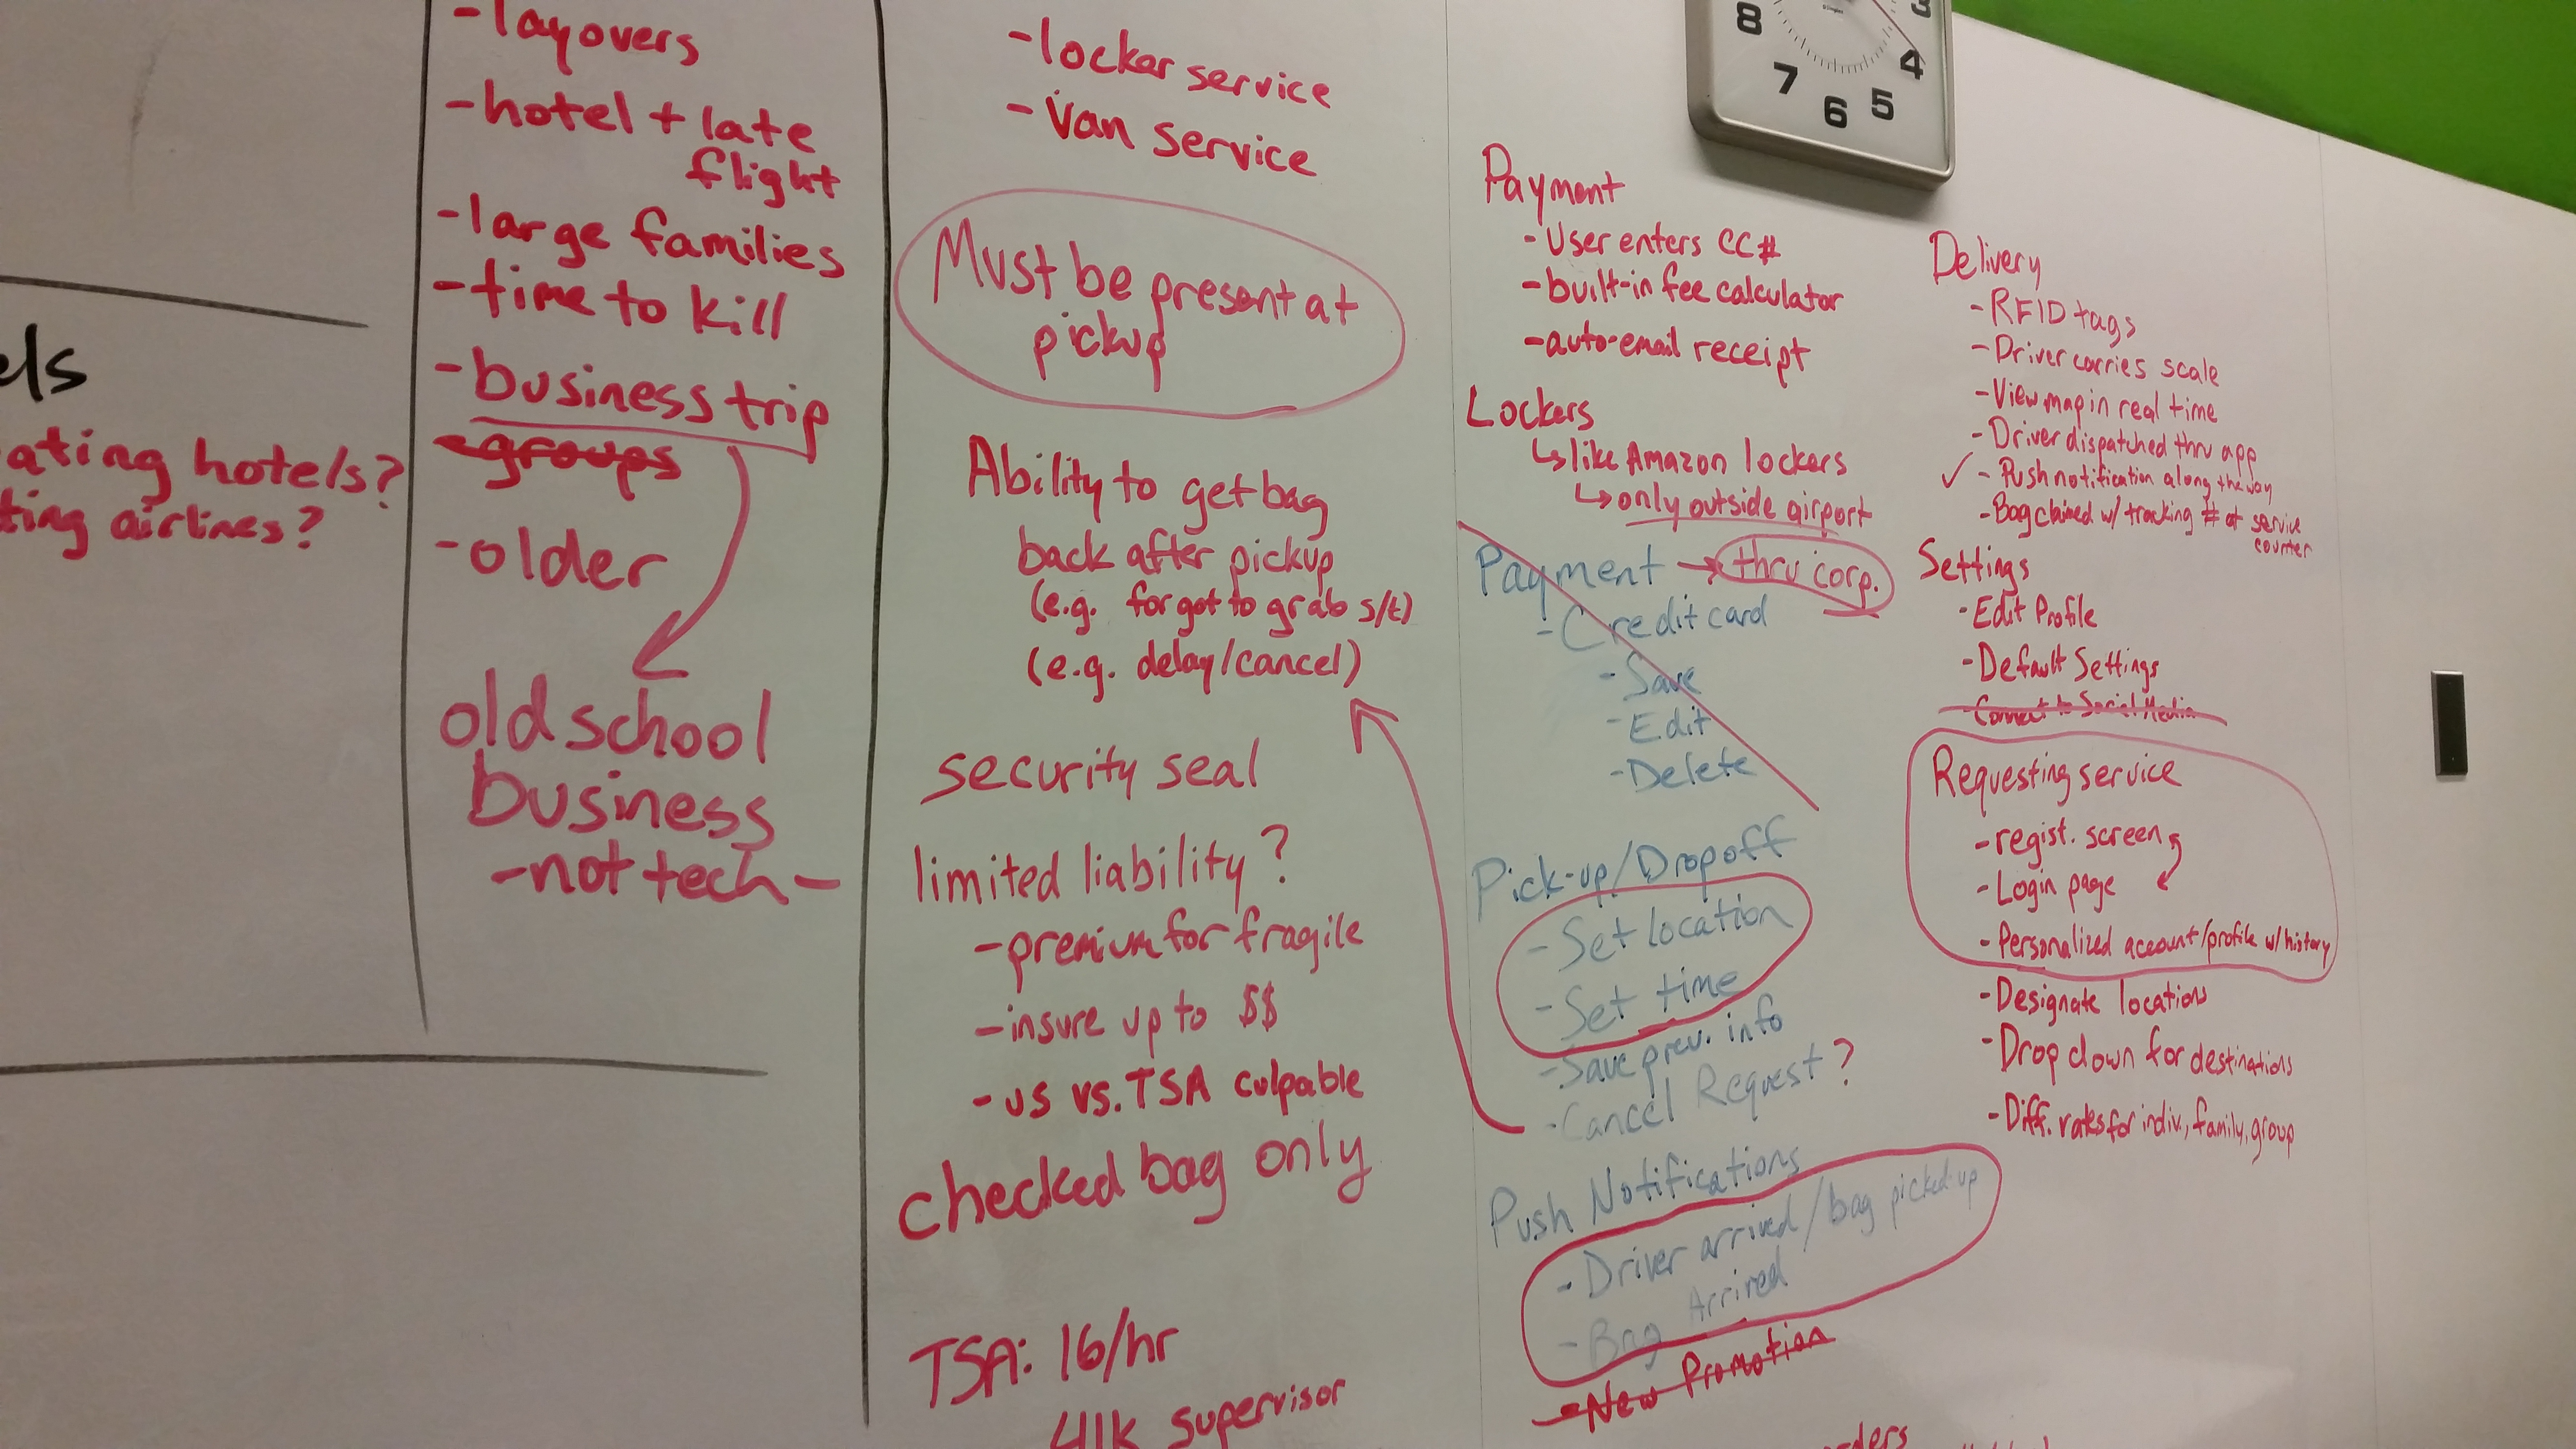 els
ating hotels?
ting airlines?
-layovers
-hotel + late
flight
-large families
-time to kill
-business trip
-groups
-older
old school
business
-not tech-
-locker service
-van service
Must be present at
pickup
Ability to get bag
back after pickup
(e.g. forgot to grab s/t)
(e.g. delay/cancel)
security seal
limited liability?
-premium for fragile
-insure up to $$
-us vs. TSA culpable
checked bag only
TSA: 16/hr
41k supervisor
8
7
6
5
4
3
Payment
-User enters CC#
-built-in fee calculator
-auto-email receipt
Lockers
↳like Amazon lockers
↳only outside airport
Payment → thru corp.
-Credit card
-Save
-Edit
-Delete
Pick-up/Dropoff
-Set location
-Set time
-Save prev. info
-Cancel Request?
Push Notifications
-Driver arrived/bag picked-up
-Bag Arrived
-New Promotion
Delivery
-RFID tags
-Driver carries scale
-View map in real time
-Driver dispatched thru app
✓ -Push notification along the way
-Bag claimed w/ tracking # at service
counter
Settings
-Edit Profile
-Default Settings
-Connect to Social Media
Requesting service
-regist. screen
-Login page
-Personalized account/profile w/history
-Designate locations
-Drop down for destinations
-Diff. rates for indiv., family, group